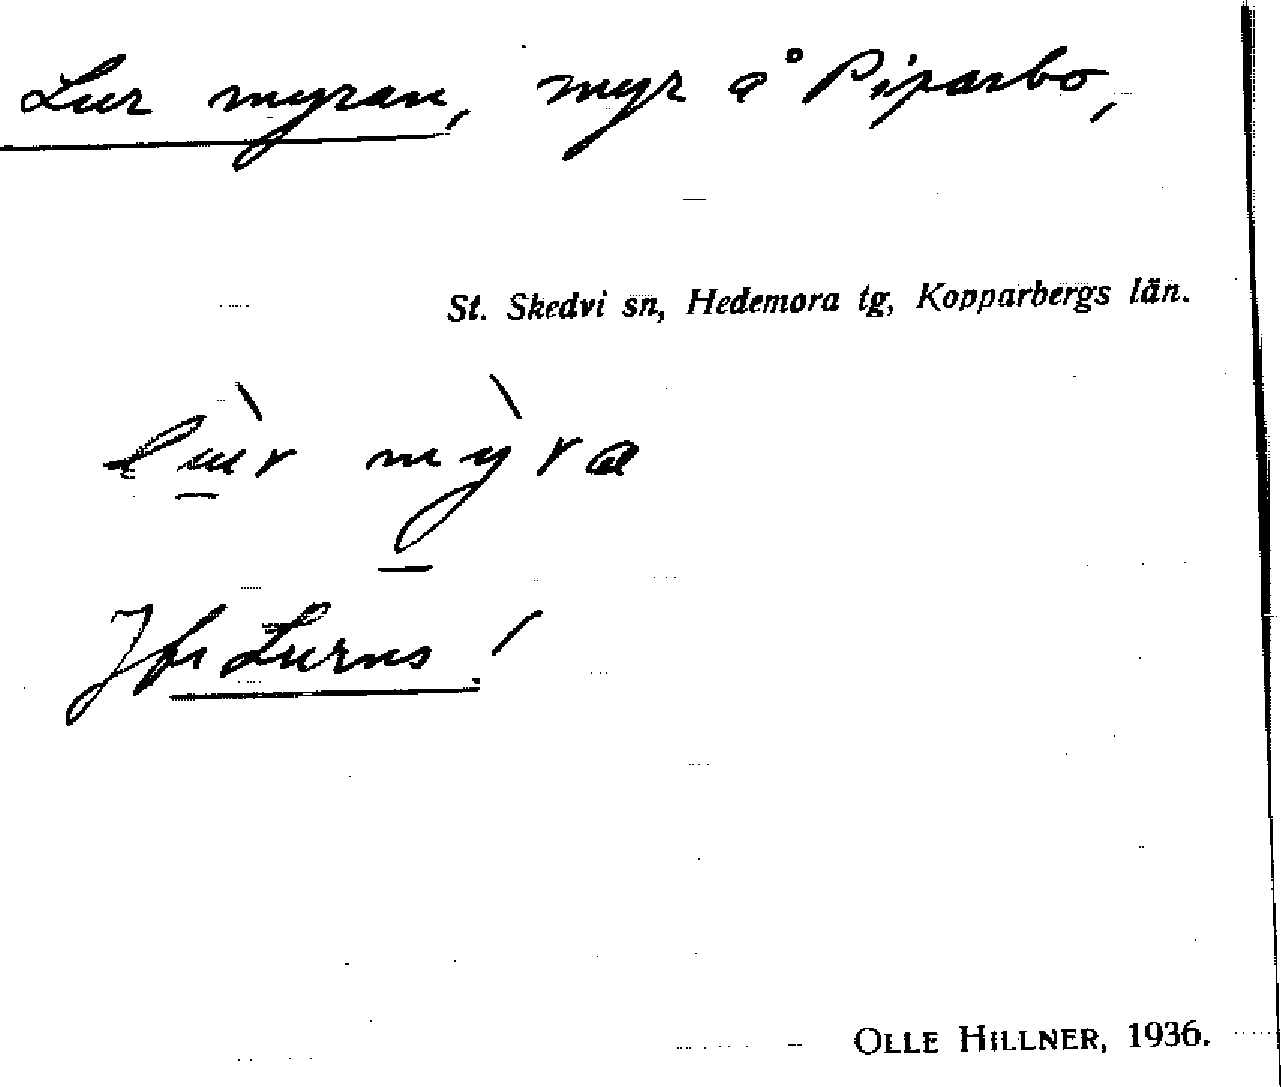 Lur myran, myr å Piparbo,
St. Skedvi sn, Hedemora tg, Kopparbergs län.
lùr mỳra
Jfr Lurns!
OLLE HILLNER, 1936.